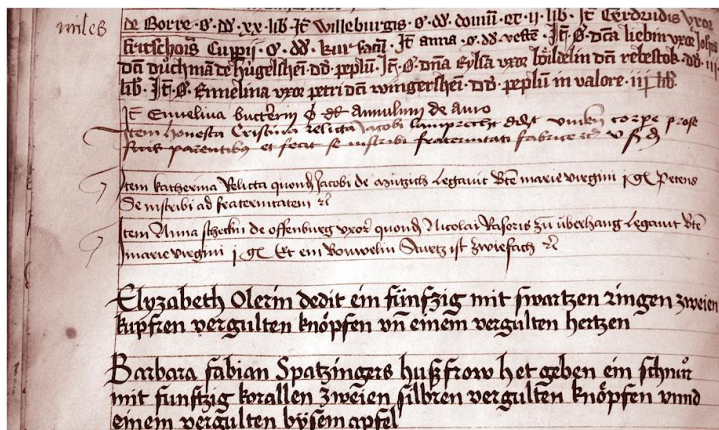 miles
de Borre · ø · dꝺ · xx · lib · Jt Willeburgis · ø · dꝺ · domū · et · ii · lib · Jt Gerdrudis vxor
fritschoīs Cuppīj · ø · dꝺ · kur Jt anna · ø · dꝺ · vestē · Jt · ø · dn̄a liebin vxor Joh̄is
dc̄ī de hügelsheī · dꝺ · peplū · Jt · ø · dn̄a Eylsa vxor dc̄ī rebestok · dꝺ · iij
lib · Jt · ø · Emelina vxor petri dc̄ī wingersheī · dꝺ · peplū in valore · iij lib
Jt Emelina ø dt Annulum de Auro
Item honesta Cristina relicta Jacobi lamprecht dedit corpe prose
parentibus et fecit se inscribi fraternitati fabrice
Item katherina Relicta quond Jacobi de Legauit bte marie virgini j gl petens
Se inscribi ad fraternitatem
Item Anna de offenburg vxor quond Nicolai Rasoris zu überhang Legauit bte
marie virgini j gl Et ein ist zwiefach
Elyzabeth Olerin dedit ein fünfzig mit swartzen ringen zweien
kupfren vergulten knöpfen vn̄ einem vergulten hertzen
Barbara fabian Spatzingers hußfrow het geben ein schnůr
mit funftzig korallen zweien silbren vergulten knöpfen vnnd
einem vergulten bysem apfel